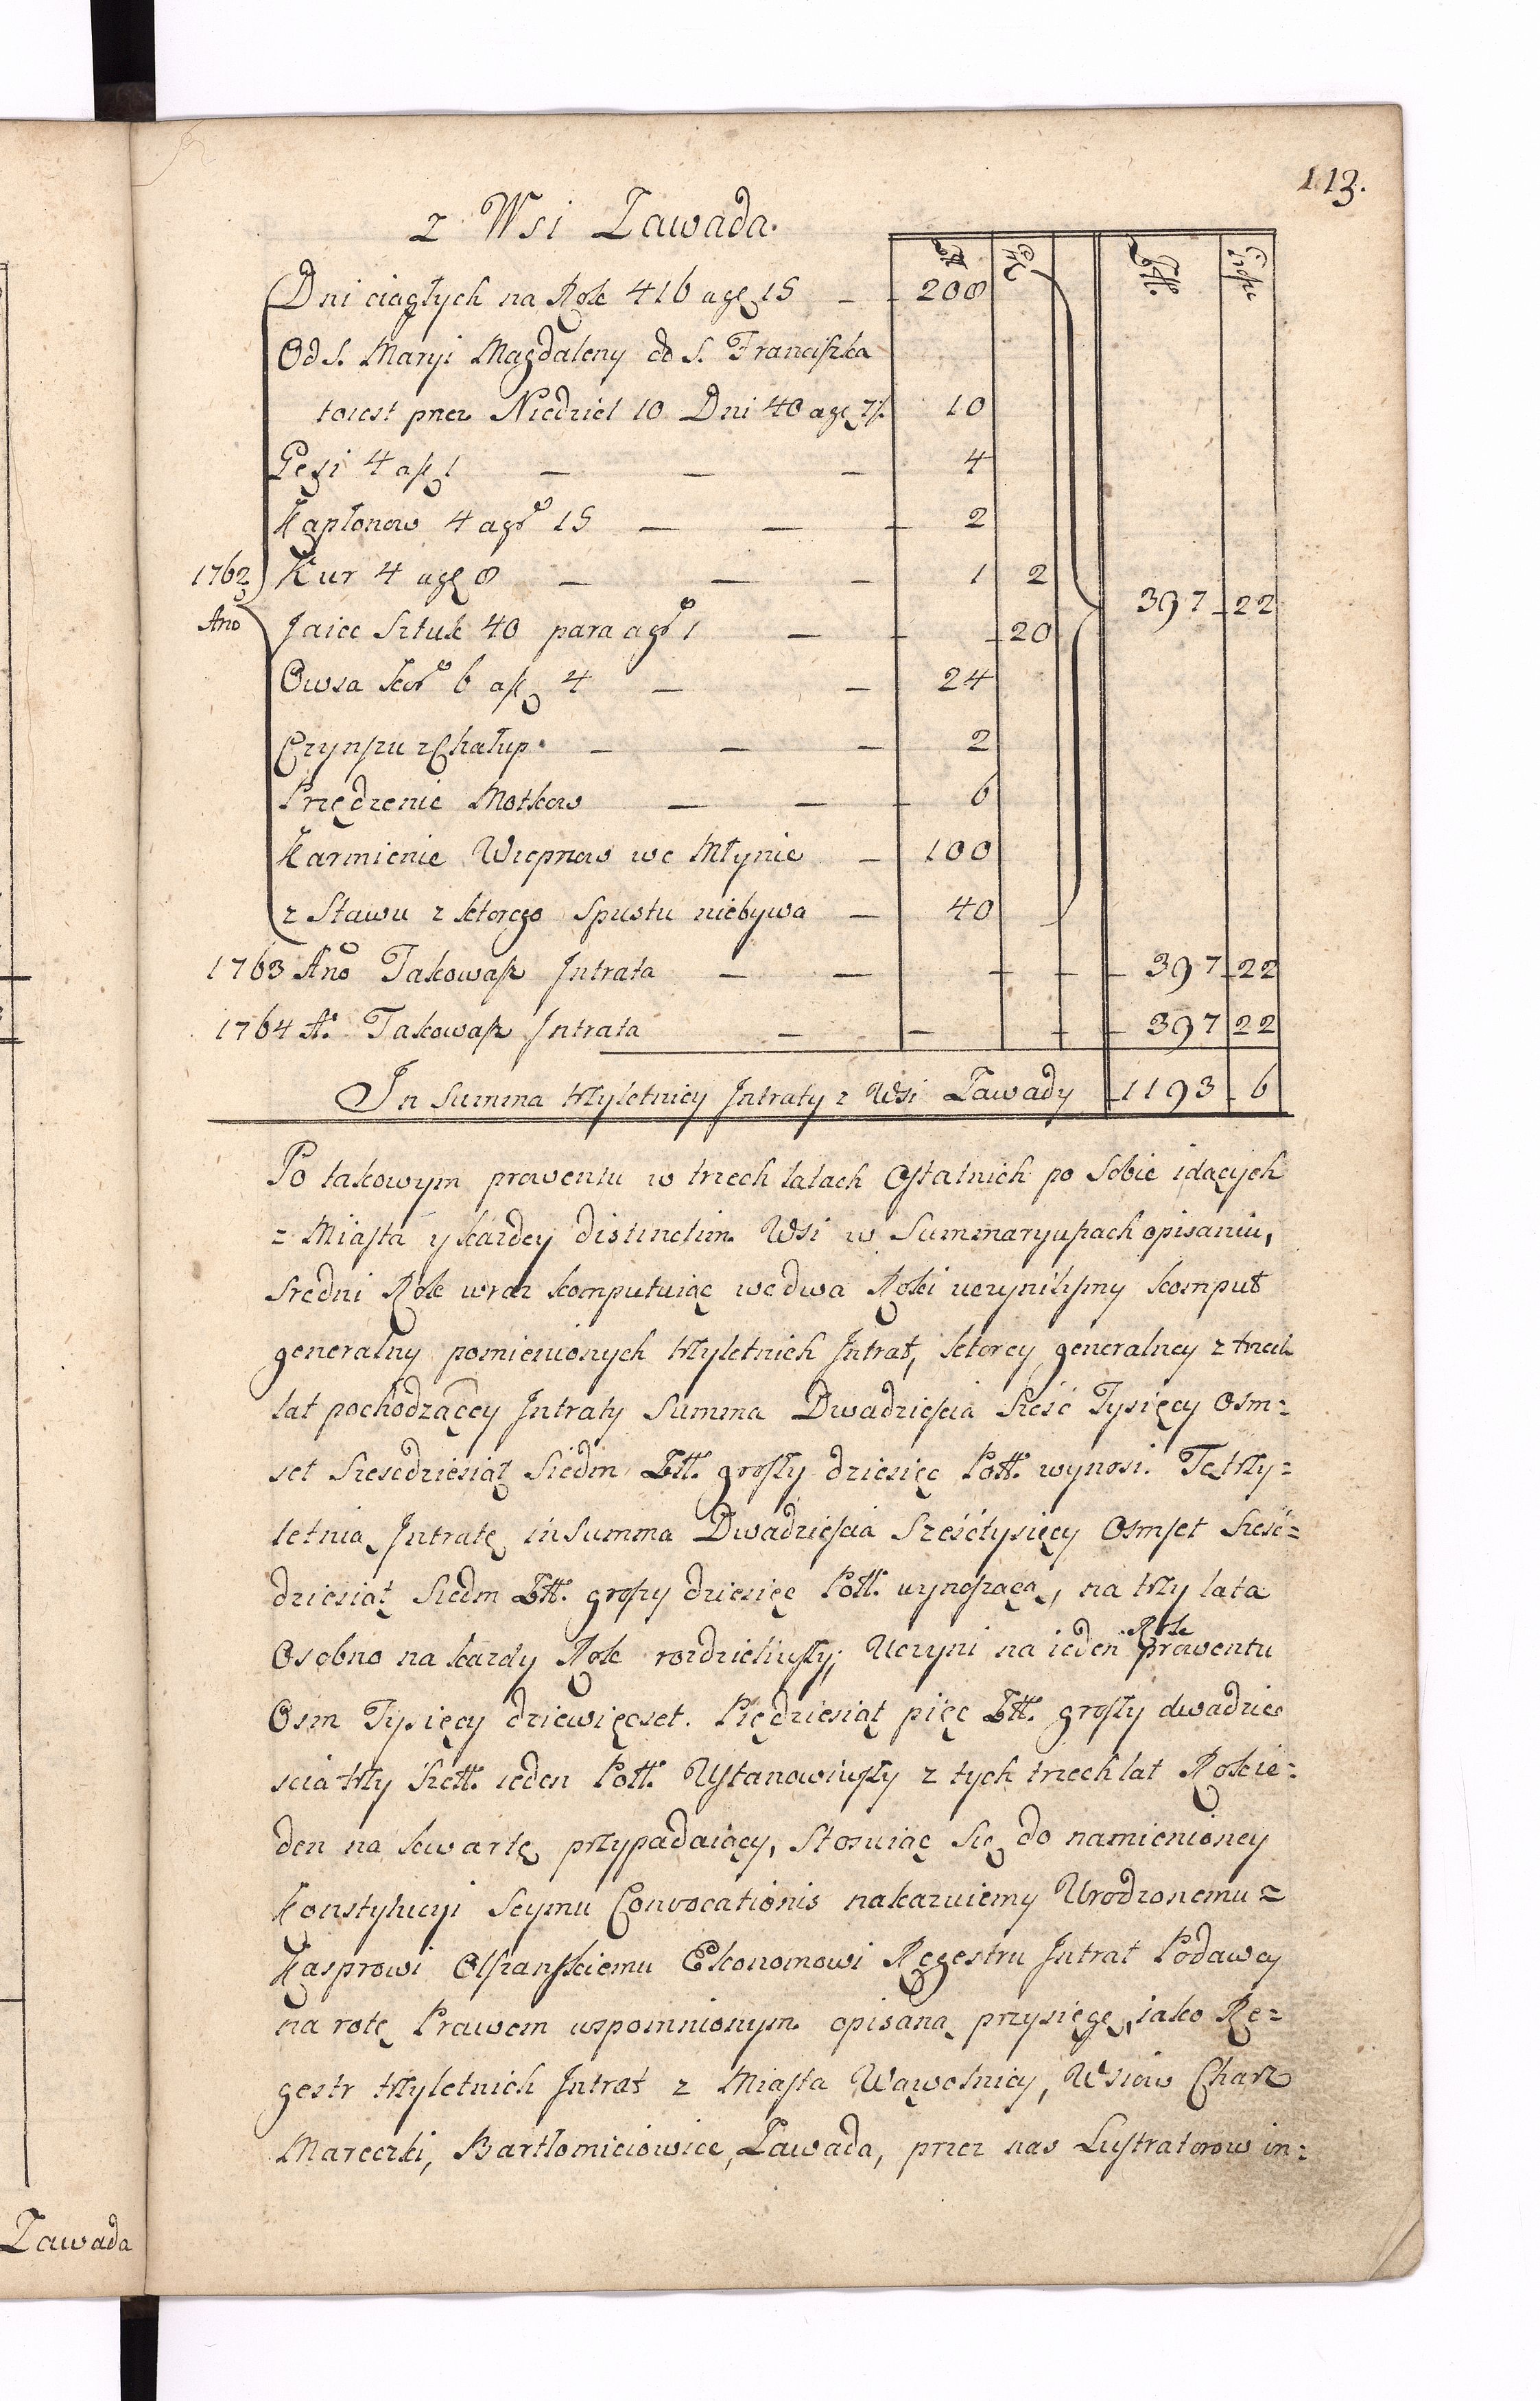 113.
z Wsi Zawada.
Złł. Gr. Złł. Groszy
Dni ciągłych na Rok 416 a gr 15 — 208
Od S. Maryi Magdaleny do S. Franciszka
toiest przez Niedziel 10 Dni 40 a gr 7½ 10
Gęsi 4 a zł 1 — — — 4
Kapłonow 4 a gr 15 — — — 2
1762 Kur 4 a gr 8 — — — 1 2
Ano Jaiec Sztuk 40 para a gr 1 — — 20 397 22
Owsa kor 6 a zł 4 — — 24
Czynszu z Chałup. — — — 2
Przędzenie Motkow — — — 6
Karmienie Wieprzow we Młynie — 100
z Stawu z ktorego Spustu niebywa — 40
1763 Ano Takowasz Intrata — — 397 22
1764 Ao. Takowasz Intrata — — 397 22
In Summa trzyletniey Intraty z Wsi Zawady 1193 6
Po takowym prowentu w trzech latach Ostatnich po Sobie idących
z Miasta y kazdey distinctim Wsi w Summaryuszach opisaniu,
Sredni Rok wraz komputuiąc we dwa Roki uczynilismy komput
generalny pomienionych trzyletnich Intrat, ktorey generalney z trzech
lat pochodzącey Intraty Summa Dwadziescia Szesć Tysięcy Osm=
set Szescdziesiąt Siedm Złł. groszy dziesięc Poll. wynosi. Tę trzy=
letnią Intratę in Summa Dwadziescia Sześćtysięcy Osmset Sześć=
dziesiąt Siedm Złł. groszy dziesięc Poll. wynoszącą, na trzy lata
Osobno na kazdy Rok rozdzieliwszy; Uczyni na ieden Rok prowentu
Osm Tysięcy dziewięcset. Pięcdziesiąt pięc Złł. groszy dwadzie
scia trzy Szell. ieden Poll. Ustanowiwszy z tych trzech lat Rok ie=
den na kwartę przypadaiący, Stosuiąc Się do namienioney
Konstytucyi Seymu Convocationis nakazuiemy Urodzonemu =
Kasprowi Olszanskiemu Ekonomowi Regestru Intrat Podawcy
na rotę Prawem wspomnionym opisaną przysięgę, iako Re=
gestr trzyletnich Intrat z Miasta Wąwolnicy, Wsiow Charz
Mareczki, Bartłomieiowice, Zawada, przez nas Lustratorow in=
Zawada